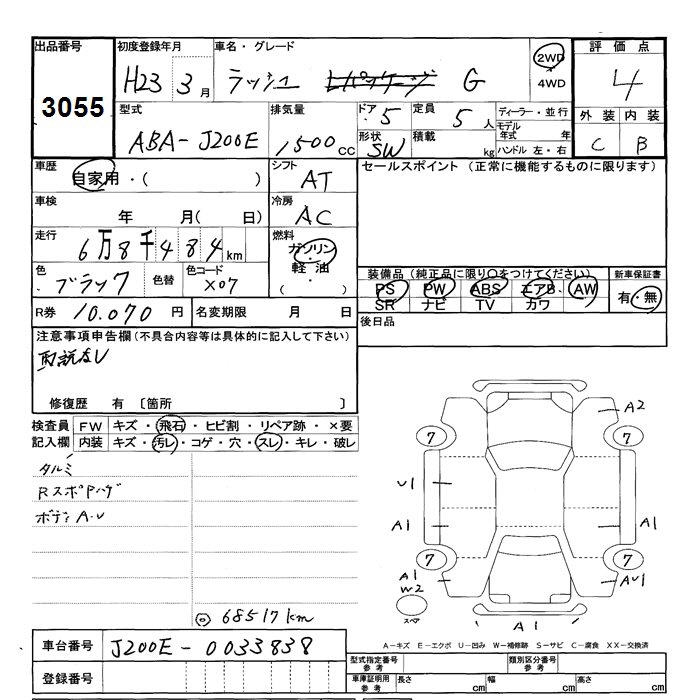 出品番号 初度登録年月 車名・グレード 2WD 評価点
3055 H23 3月 ラッシュ G 4WD 4
型式 排気量 ドア 5 定員 5人 ディーラー・並行 外装 内装
ABA-J200E 1500cc 形状 SW 積載 kg モデル年式 年 C B
ハンドル 左・右
車歴 自家用・( ) シフト AT セールスポイント (正常に機能するものに限ります)
車検 年 月( 日) 冷房 AC
走行 6万8千484km 燃料 ガソリン
軽油
( ・ )
色 ブラック 色替 色コード X07
装備品(純正品に限り○をつけてください) 新車保証書
PS PW ABS エアB AW 有・無
SR ナビ TV カワ
R券 10.070円 名変期限 月 日 後日品
注意事項申告欄(不具合内容等は具体的に記入して下さい)
取説なし
修復歴 有 〔箇所 〕
検査員 FW キズ・飛石・ヒビ割・リペア跡・×要
記入欄 内装 キズ・汚レ・コゲ・穴・スレ・キレ・破レ
タルミ
RスポPハゲ
ボディA.U
◎ 68517km
A2
7 7
U1
A1 A1
7 7
A1
W2 AU1
スペア
A1
A-キズ E-エクボ U-凹み W-補修跡 S-サビ C-腐食 XX-交換済
車台番号 J200E-0033838
型式指定番号 参考 類別区分番号 参考
登録番号 車庫証明用 参考 長さ cm 幅 cm 高さ cm